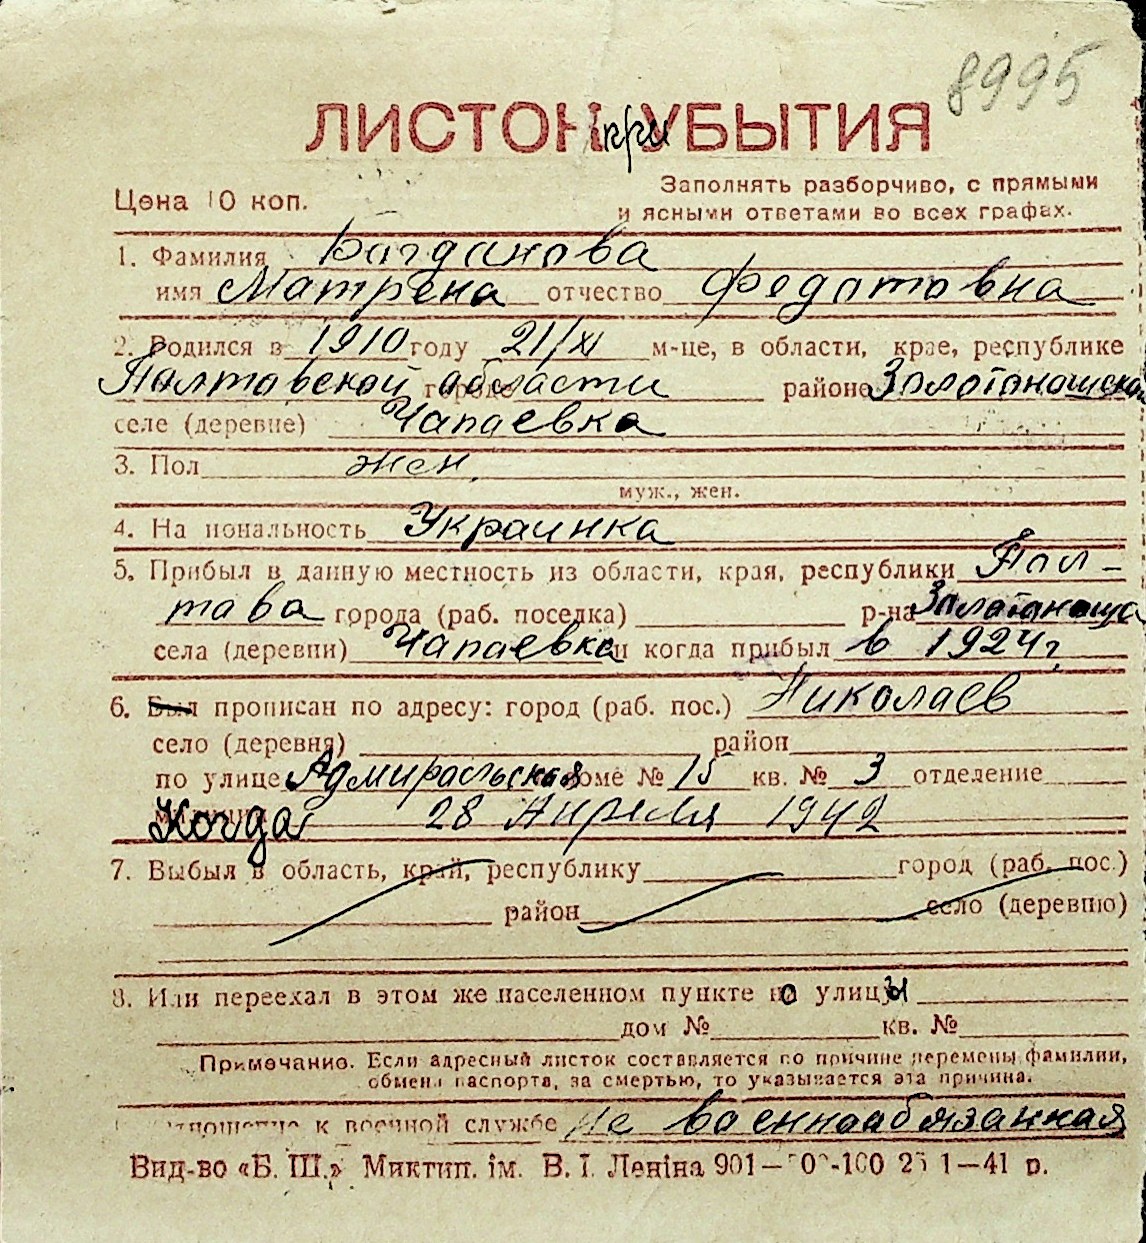 8995
ЛИСТОК при УБЫТИЯ
Цена 10 коп.
Заполнять разборчиво, с прямыми
и ясными ответами во всех графах.
1. Фамилия Багданова
имя Матрена отчество Федатовна
2. Родился в 1910 году 21/XI м-це, в области, крае, республике
Палтавской области городе районе Золотоношском
селе (деревне) Чапаевка
3. Пол жен.
муж., жен.
4. Национальность Украинка
5. Прибыл в данную местность из области, края, республики Пал-
тава города (раб. поселка) р-на Золотаноща
села (деревни) Чапаевка и когда прибыл в 1924 г.
6. Был прописан по адресу: город (раб. пос.) Николаев
село (деревня) район
по улице Адмиральская доме № 15 кв. № 3 отделение
милиции Когда 28 Апреля 1942
7. Выбыл в область, край, республику город (раб. пос.)
район село (деревню)
8. Или переехал в этом же населенном пункте по улицы
дом № кв. №
Примечание. Если адресный листок составляется по причине перемены фамилии,
обмена паспорта, за смертью, то указывается эта причина.
отношение к военной службе не военнообязанная
Вид-во «Б. Ш.» Миктип. ім. В. І. Леніна 901— 0-100 25 1—41 р.